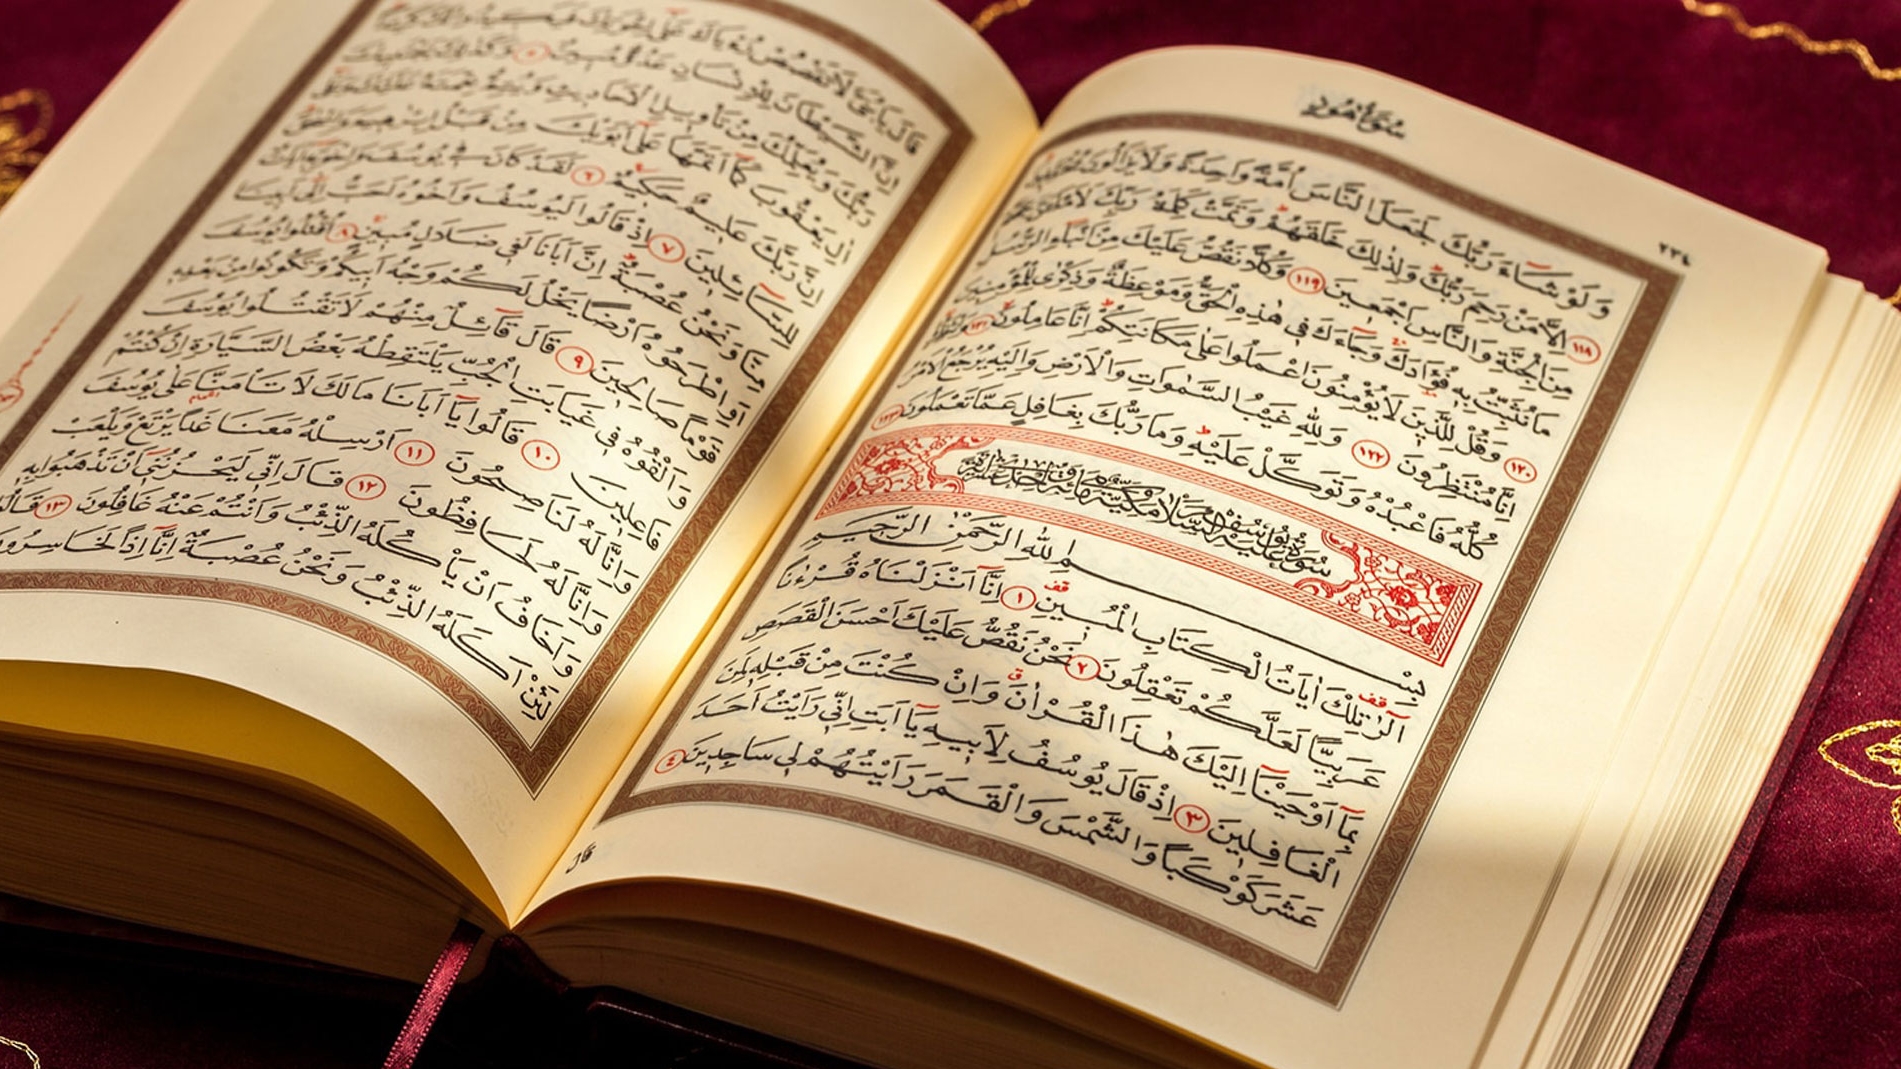 سُورَةُ هُودٍ
٢٣٤
وَلَوْ شَاءَ رَبُّكَ لَجَعَلَ النَّاسَ اُمَّةً وَاحِدَةً وَلَا يَزَالُونَ مُخْتَلِفِينَ
١١٨ اِلَّا مَنْ رَحِمَ رَبُّكَ وَلِذٰلِكَ خَلَقَهُمْ وَتَمَّتْ كَلِمَةُ رَبِّكَ لَاَمْلَئَنَّ جَهَنَّمَ
مِنَ الْجِنَّةِ وَالنَّاسِ اَجْمَعِينَ ١١٩ وَكُلًّا نَقُصُّ عَلَيْكَ مِنْ اَنْبَاءِ الرُّسُلِ
مَا نُثَبِّتُ بِهِ فُؤَادَكَ وَجَاءَكَ فِي هٰذِهِ الْحَقُّ وَمَوْعِظَةٌ وَذِكْرٰى لِلْمُؤْمِنِينَ
١٢٠ وَقُلْ لِلَّذِينَ لَا يُؤْمِنُونَ اعْمَلُوا عَلٰى مَكَانَتِكُمْ اِنَّا عَامِلُونَ ١٢١ وَانْتَظِرُوا
اِنَّا مُنْتَظِرُونَ ١٢٢ وَلِلّٰهِ غَيْبُ السَّمٰوَاتِ وَالْاَرْضِ وَاِلَيْهِ يُرْجَعُ الْاَمْرُ
كُلُّهُ فَاعْبُدْهُ وَتَوَكَّلْ عَلَيْهِ وَمَا رَبُّكَ بِغَافِلٍ عَمَّا تَعْمَلُونَ ١٢٣
سُورَةُ يُوسُفَ عَلَيْهِ السَّلَامُ مَكِّيَّةٌ
بِسْمِ اللّٰهِ الرَّحْمٰنِ الرَّحِيمِ
الٓرٰ تِلْكَ اٰيَاتُ الْكِتَابِ الْمُبِينِ ١ اِنَّا اَنْزَلْنَاهُ قُرْءٰنًا
عَرَبِيًّا لَعَلَّكُمْ تَعْقِلُونَ ٢ نَحْنُ نَقُصُّ عَلَيْكَ اَحْسَنَ الْقَصَصِ
بِمَا اَوْحَيْنَا اِلَيْكَ هٰذَا الْقُرْاٰنَ وَاِنْ كُنْتَ مِنْ قَبْلِهِ لَمِنَ
الْغَافِلِينَ ٣ اِذْ قَالَ يُوسُفُ لِاَبِيهِ يَا اَبَتِ اِنِّي رَاَيْتُ اَحَدَ
عَشَرَ كَوْكَبًا وَالشَّمْسَ وَالْقَمَرَ رَاَيْتُهُمْ لِي سَاجِدِينَ ٤
قَالَ
قَالَ يَا بُنَيَّ لَا تَقْصُصْ رُءْيَاكَ عَلٰى اِخْوَتِكَ فَيَكِيدُوا لَكَ كَيْدًا
اِنَّ الشَّيْطَانَ لِلْاِنْسَانِ عَدُوٌّ مُبِينٌ ٥ وَكَذٰلِكَ يَجْتَبِيكَ
رَبُّكَ وَيُعَلِّمُكَ مِنْ تَأْوِيلِ الْاَحَادِيثِ وَيُتِمُّ نِعْمَتَهُ عَلَيْكَ وَعَلٰى
اٰلِ يَعْقُوبَ كَمَا اَتَمَّهَا عَلٰى اَبَوَيْكَ مِنْ قَبْلُ اِبْرٰهِيمَ وَاِسْحٰقَ
اِنَّ رَبَّكَ عَلِيمٌ حَكِيمٌ ٦ لَقَدْ كَانَ فِي يُوسُفَ وَاِخْوَتِهِ اٰيَاتٌ
لِلسَّائِلِينَ ٧ اِذْ قَالُوا لَيُوسُفُ وَاَخُوهُ اَحَبُّ اِلٰى اَبِينَا
مِنَّا وَنَحْنُ عُصْبَةٌ اِنَّ اَبَانَا لَفِي ضَلَالٍ مُبِينٍ ٨ اُقْتُلُوا يُوسُفَ
اَوِ اطْرَحُوهُ اَرْضًا يَخْلُ لَكُمْ وَجْهُ اَبِيكُمْ وَتَكُونُوا مِنْ بَعْدِهِ
قَوْمًا صَالِحِينَ ٩ قَالَ قَائِلٌ مِنْهُمْ لَا تَقْتُلُوا يُوسُفَ
وَاَلْقُوهُ فِي غَيَابَتِ الْجُبِّ يَلْتَقِطْهُ بَعْضُ السَّيَّارَةِ اِنْ كُنْتُمْ
فَاعِلِينَ ١٠ قَالُوا يَا اَبَانَا مَا لَكَ لَا تَأْمَنَّا عَلٰى يُوسُفَ
وَاِنَّا لَهُ لَنَاصِحُونَ ١١ اَرْسِلْهُ مَعَنَا غَدًا يَرْتَعْ وَيَلْعَبْ
وَاِنَّا لَهُ لَحَافِظُونَ ١٢ قَالَ اِنِّي لَيَحْزُنُنِي اَنْ تَذْهَبُوا بِهِ
وَاَخَافُ اَنْ يَأْكُلَهُ الذِّئْبُ وَاَنْتُمْ عَنْهُ غَافِلُونَ ١٣ قَالُوا
لَئِنْ اَكَلَهُ الذِّئْبُ وَنَحْنُ عُصْبَةٌ اِنَّا اِذًا لَخَاسِرُونَ